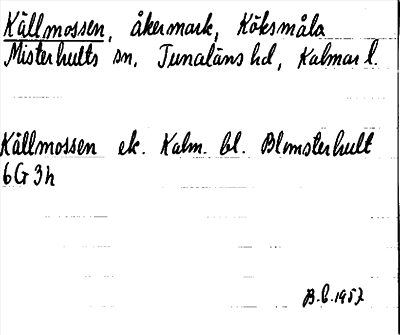 Källmossen, åkermark, Köksmåla
Misterhults sn, Tunaläns hd, Kalmar l.
Källmossen ek. Kalm. bl. Blomsterhult
6G3h
B.C. 1957